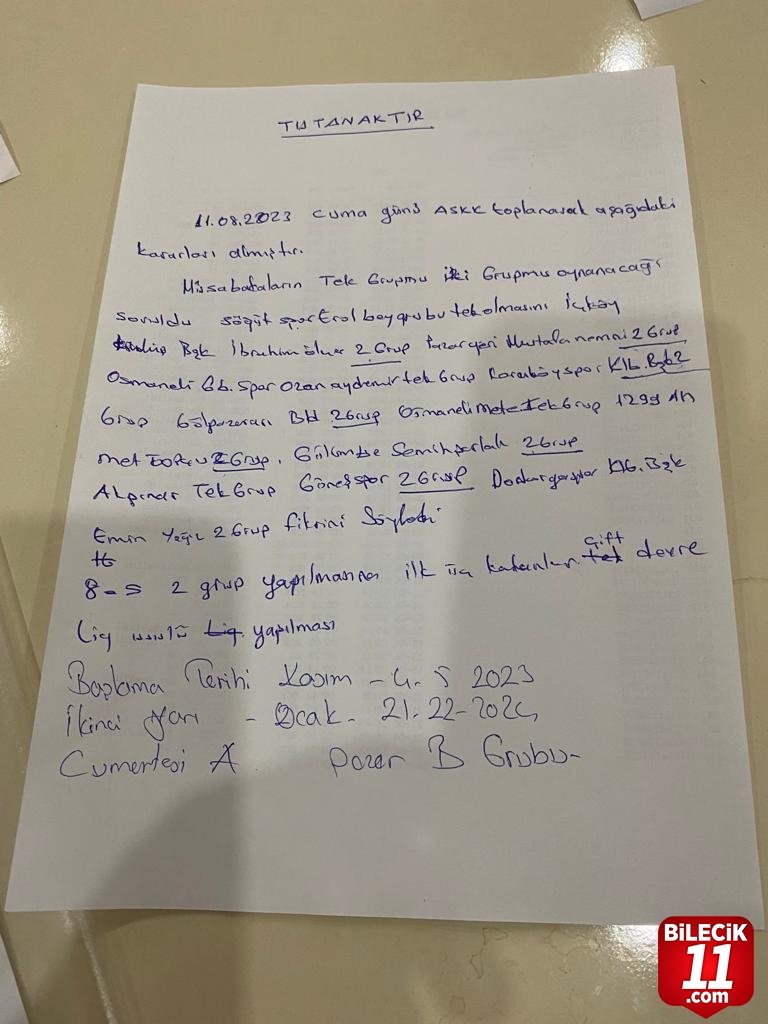 TUTANAKTIR
11.08.2023 Cuma günü ASKK toplanarak aşağıdaki
kararları almıştır.
Müsabakaların Tek Grupmu iki Grupmu oynanacağı
soruldu söğüt spor Erol bey grubu tek olmasını İçköy
Bşk İbrahim 2 Grup Pazaryeri Mustafa 2 Grup
Osmaneli Gb. Spor Ozan aydemir tek Grup Karaköyspor Klb. Bşk 2
Grup Gölpazarı 2 Grup Osmaneli Mete Tek Grup 1299 Ah
met 2 Grup, Gülümbe Semih 2 Grup
Akpınar Tek Grup Güneşspor 2 Grup Dodurgaspor Klb. Bşk
Emin Yeşil 2 Grup fikrini Söyledi
8 - 2 grup yapılmasına ilk üç kalanlar tek çift devre
Lig usulü Lig yapılması
Başlama Tarihi Kasım - 4. 5 2023
İkinci Yarı - Ocak - 21-22-2024
Cumertesi A Pazar B Grubu-
BİLECİK
11
.com